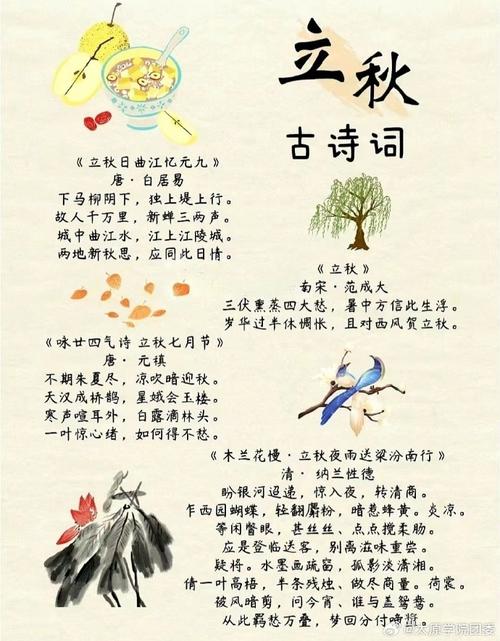 立秋
古诗词
《立秋日曲江忆元九》
唐·白居易
下马柳阴下，独上堤上行。
故人千万里，新蝉三两声。
城中曲江水，江上江陵城。
两地新秋思，应同此日情。
《立秋》
南宋·范成大
三伏熏蒸四大愁，暑中方信此生浮。
岁华过半休惆怅，且对西风贺立秋。
《咏廿四气诗 立秋七月节》
唐·元稹
不期朱夏尽，凉吹暗迎秋。
天汉成桥鹊，星娥会玉楼。
寒声喧耳外，白露滴林头。
一叶惊心绪，如何得不愁。
《木兰花慢·立秋夜雨送梁汾南行》
清·纳兰性德
盼银河迢递，惊入夜，转清商。
乍西园蝴蝶，轻翻麝粉，暗惹蜂黄。炎凉。
等闲瞥眼，甚丝丝、点点搅柔肠。
应是登临送客，别离滋味重尝。
疑将。水墨画疏窗，孤影淡潇湘。
倩一叶高梧，半条残烛、做尽商量。荷裳。
被风暗剪，问今宵、谁与盖鸳鸯。
从此羁愁万叠，梦回分付啼螀。
@太原学院团委